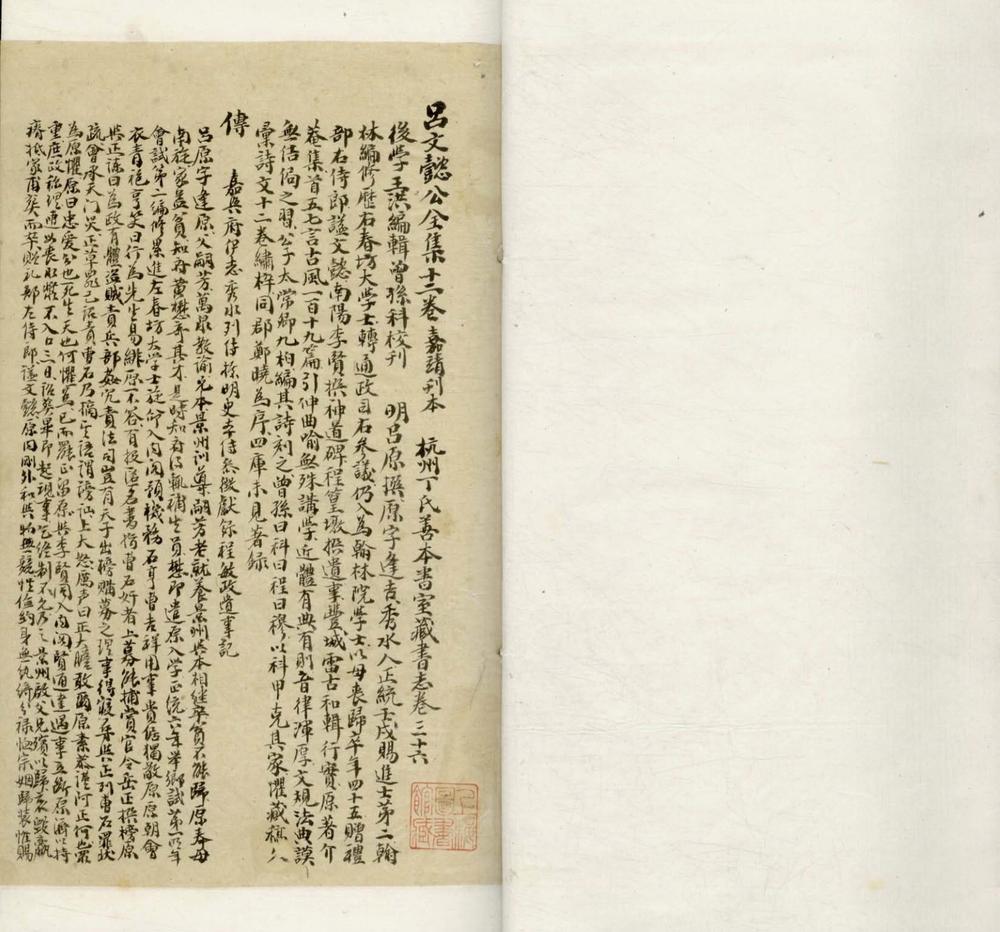 呂文懿公全集十二卷嘉靖刊本　杭州丁氏善本書室藏書志卷三十六
後學王洪編輯曾孫科校刊　明呂原撰原字逢吉秀水人正統壬戌賜進士第二翰
林編修歷右春坊大學士轉通政司右參議仍入為翰林院學士以母喪歸卒年四十五贈禮
部右侍郎謚文懿南陽李賢撰神道碑程篁墩撰遺事豐城雷古和輯行實原著介
菴集首五七言古風一百十九篇引伸曲喻無殊講學近體有典有則音律渾厚文現法典謨
無佶倔之習公子太常卿九柏編其詩刻之曾孫曰科曰程曰穆以科甲克其家懼藏稿久
彙詩文十二卷繡梓同郡鄭曉為序四庫未見著錄
傳　嘉興府伊志秀水列傳採明史本傳參徵獻錄程敏政遺事記
呂原字逢原父嗣芳萬泉教諭兄本景州訓導嗣芳老就養景州與本相繼卒貧不能歸原奉母
南旋家益貧知府黃懋奇其才是時知府得輒補生員懋即遣原入學正統六年舉鄉試第一明年
會試第二編修累進左春坊大學士旋命入內閣預機務石亨曹吉祥用事貴倨獨敬原原朝會
衣青袍亨笑曰行為先生易緋原不答有投匿名書指曹石奸者上募能捕賞官令岳正撰榜原
與正諫曰為政有體盜賊責兵部姦宄責法司豈有天子出牓購募之理事得寢尋與正列曹石罪狀
疏會承天門災正草罷己詔責曹石乃摘其語謂謗訕上大怒厲声曰正大膽敢爾原素恭謹阿正何也眾
為原懼原曰忠愛公也死生天也何懼焉已而罷正留原與李賢同入內閣賢通達遇事立斷原濟以持
重庶政稱理連以喪水漿不入口三日詔葬畢即起視事乞終制不允乃之景州啟父兄殯以歸哀毀羸
瘠抵家甫葬而卒贈禮部左侍郎謚文懿原內剛外和與物無競性儉約身無紈綺分祿恤宗姻歸裝惟賜